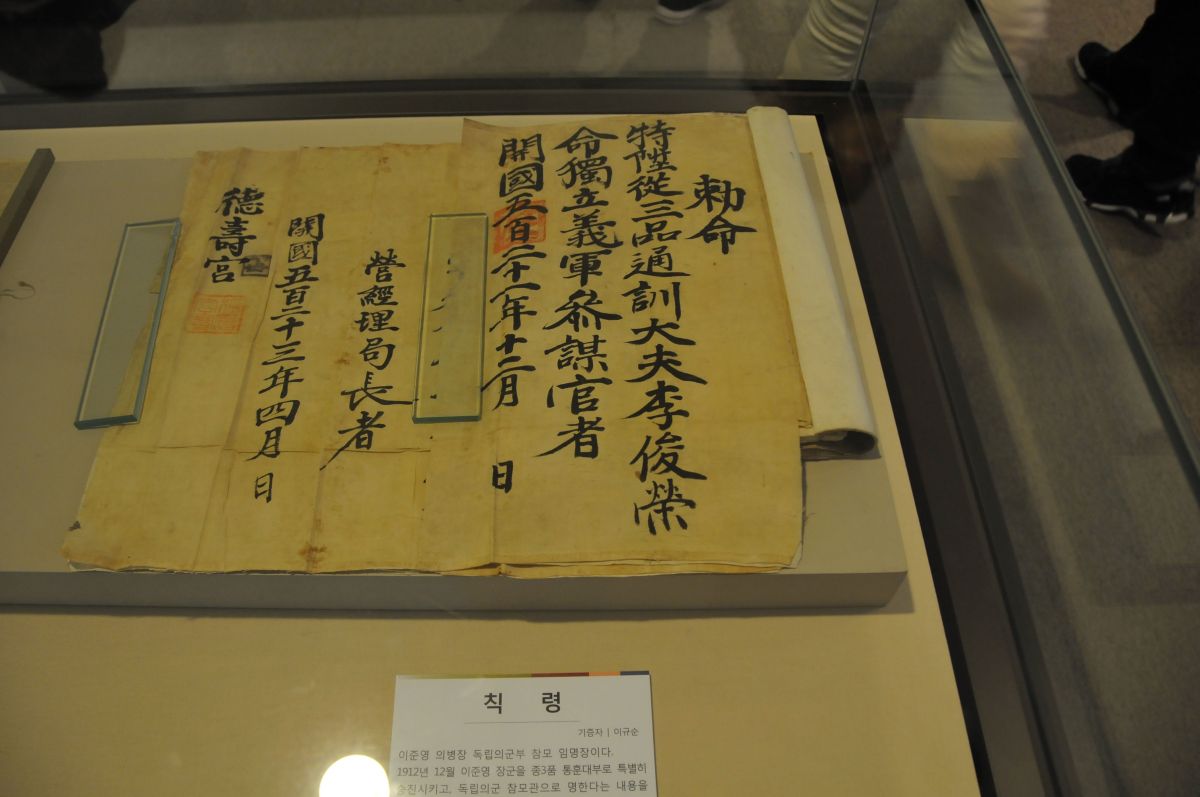 勅命
特陞從三品通訓大夫李俊榮
命獨立義軍參謀官者
開國五百二十一年十二月 日
營經理局長者
開國五百二十三年四月 日
德壽宮
칙 령
기증자 | 이규순
이준영 의병장 독립의군부 참모 임명장이다.
1912년 12월 이준영 장군을 종3품 통훈대부로 특별히
승진시키고, 독립의군 참모관으로 명한다는 내용을